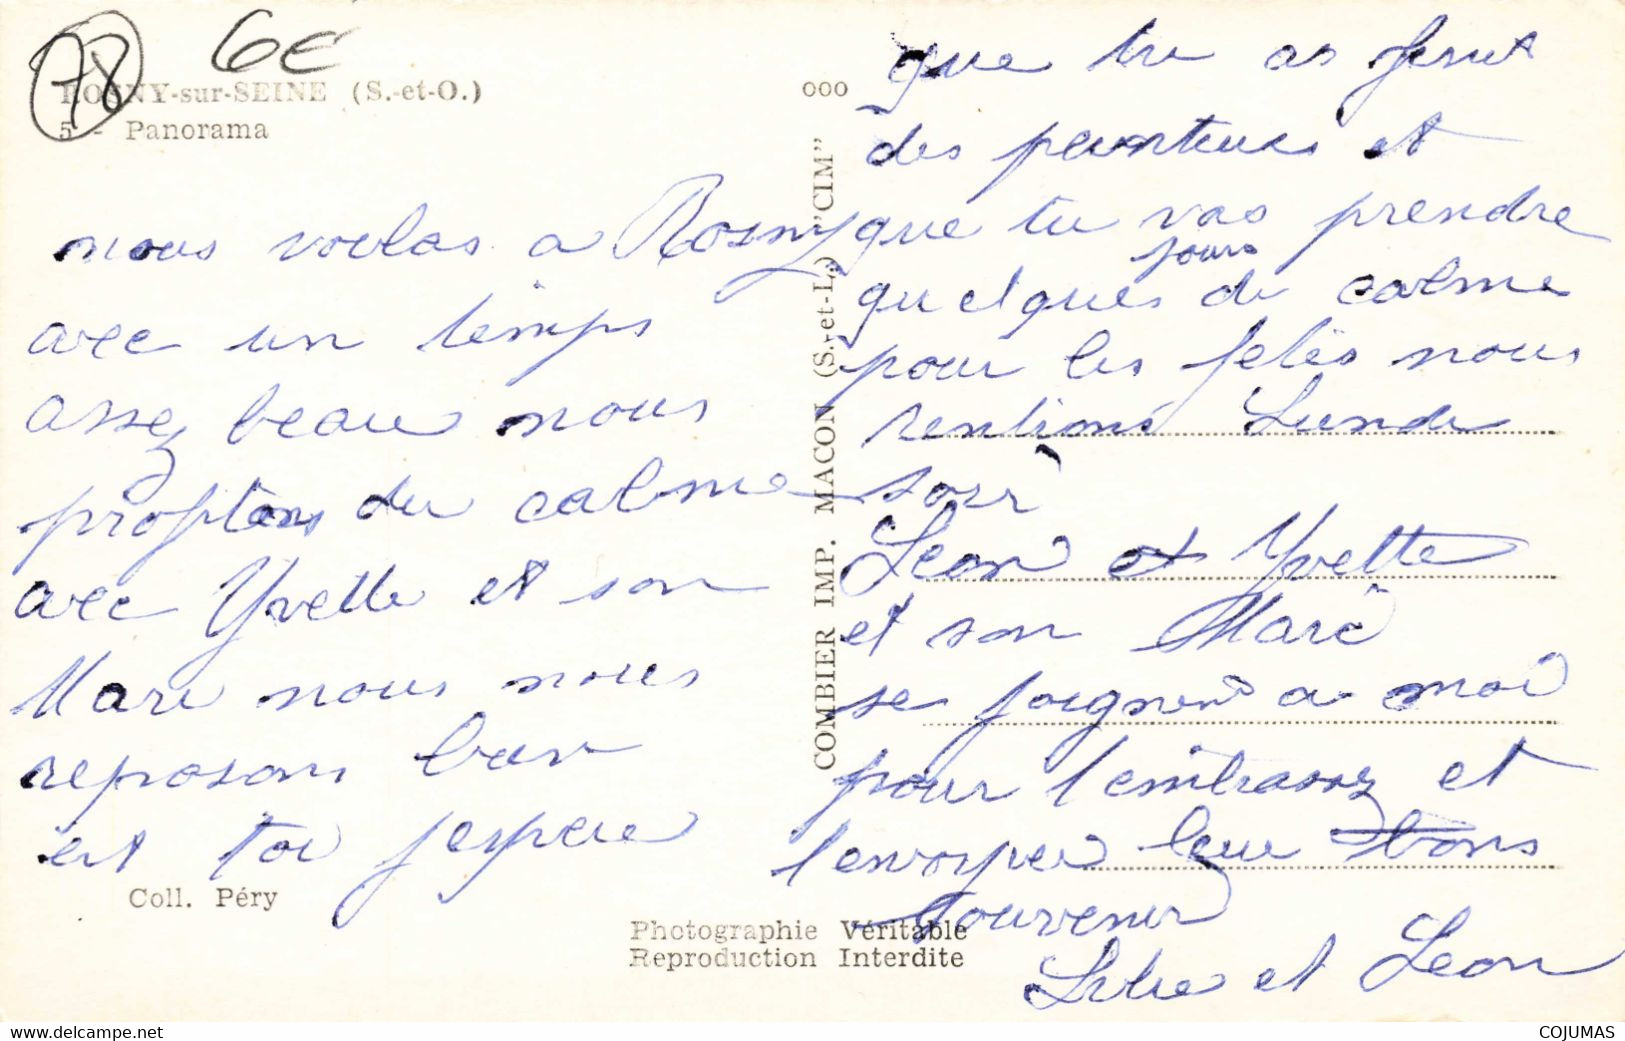 78
6€
ROSNY-sur-SEINE (S.-et-O.)
5 - Panorama
nous voilas a Rosny
avec un temps
assez beau nous
profitons du calme
avec Yvette et son
Mari nous nous
reposons bien
et toi j espere
Coll. Péry
COMBIER IMP. MACON (S.-et-L.) "CIM"
Photographie Véritable
Reproduction Interdite
000
que tu as finit
des peinteures et
que tu vas prendre
jours
quelques de calme
pour les fetes nous
rentrons Lundi
soir
Leon et Yvette
et son Mari
se joignent a moi
pour t embrassez et
t envoyer leur bons
souvenir
et Leon
COJUMAS